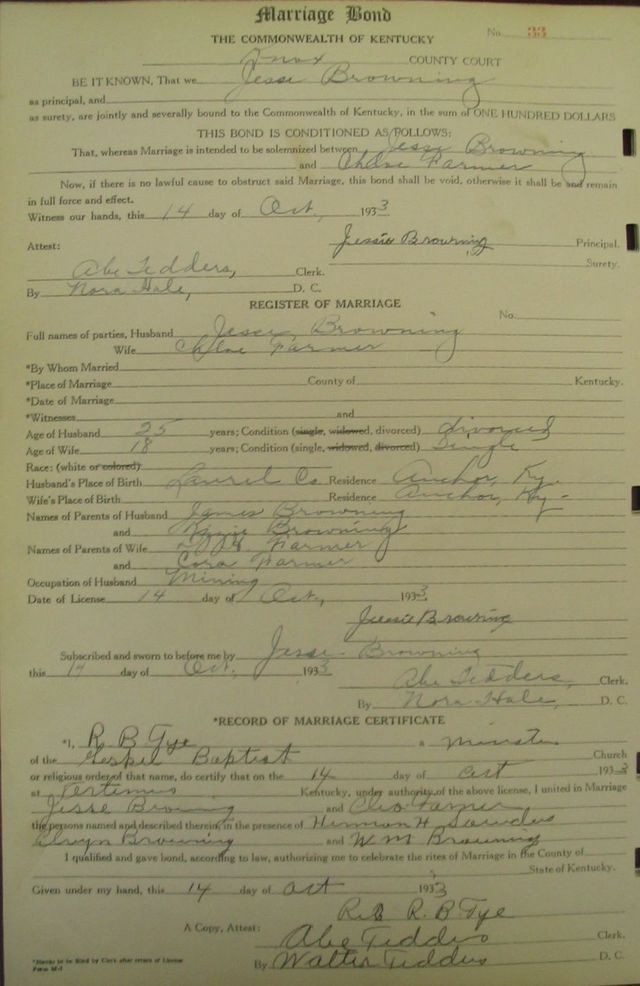 Marriage Bond
No. 33
THE COMMONWEALTH OF KENTUCKY
Knox COUNTY COURT
BE IT KNOWN, That we Jesse Browning
as principal, and
as surety, are jointly and severally bound to the Commonwealth of Kentucky, in the sum of ONE HUNDRED DOLLARS
THIS BOND IS CONDITIONED AS FOLLOWS:
That, whereas Marriage is intended to be solemnized between Jesse Browning
and Chloe Farmer
Now, if there is no lawful cause to obstruct said Marriage, this bond shall be void, otherwise it shall be and remain
in full force and effect.
Witness our hands, this 14 day of Oct, 1933
Jessie Browning Principal.
Attest: Surety.
Abe Tedders, Clerk.
By Nora Hale, D. C.
REGISTER OF MARRIAGE
No.
Full names of parties, Husband Jesse Browning
Wife Chloe Farmer
*By Whom Married
*Place of Marriage County of Kentucky.
*Date of Marriage
*Witnesses and
Age of Husband 25 years; Condition (single, widowed, divorced) divorced
Age of Wife 18 years; Condition (single, widowed, divorced) Single
Race: (white or colored)
Husband's Place of Birth Laurel Co Residence Anchor, Ky.
Wife's Place of Birth Residence Anchor, Ky.
Names of Parents of Husband James Browning
and Browning
Names of Parents of Wife Farmer
and Cora Farmer
Occupation of Husband Mining
Date of License 14 day of Oct, 1933
Jessie Browning
Subscribed and sworn to before me by Jesse Browning
this 14 day of Oct, 1933
Abe Tedders, Clerk.
By Nora Hale, D. C.
*RECORD OF MARRIAGE CERTIFICATE
*I, R. B Tye a Minister
of the Gospel Baptist Church
or religious order of that name, do certify that on the 14 day of Oct 1933
at Artemus Kentucky, under authority of the above license, I united in Marriage
Jesse Browning and Cleo Farmer
the persons named and described therein, in the presence of Herman H Saunders
Browning and W. M Browning
I qualified and gave bond, according to law, authorizing me to celebrate the rites of Marriage in the County of
State of Kentucky.
Given under my hand, this 14 day of Oct 1933
R. B. Tye
A Copy, Attest: Abe Tedders Clerk.
By Walter Tedders D. C.
*Blanks to be filled by Clerk after return of License